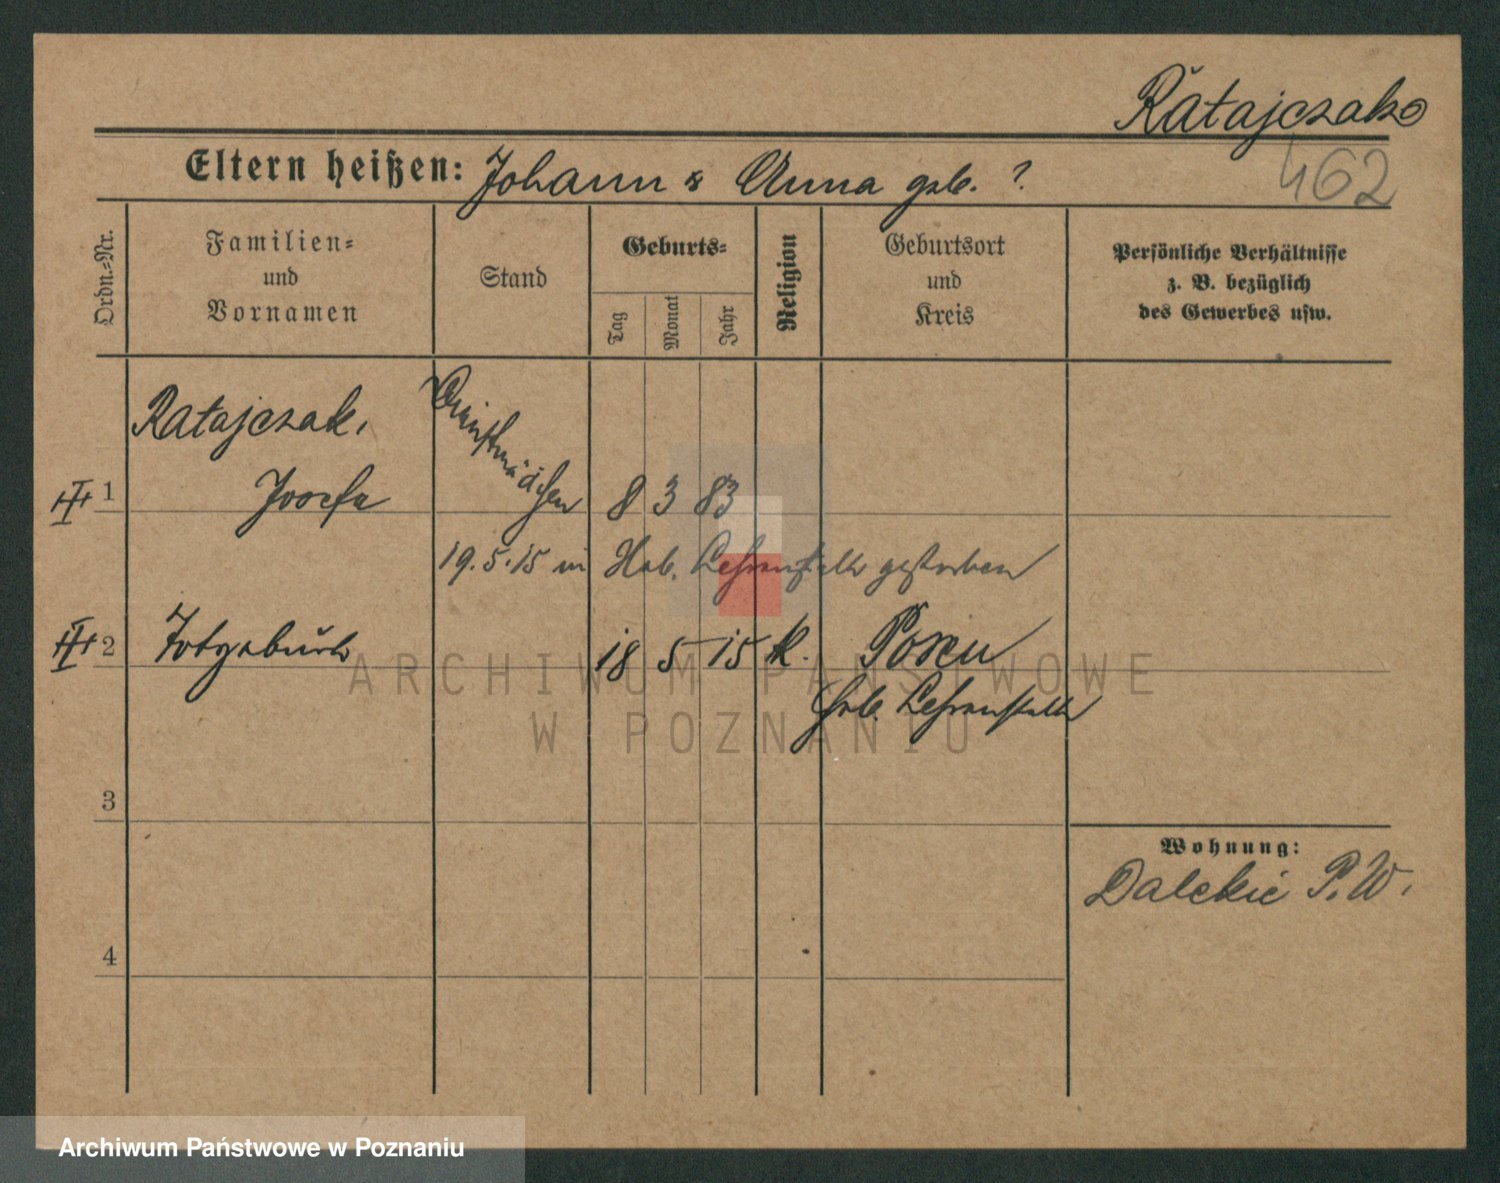 Ratajczak
462
Eltern heißen: Johann & Anna geb. ?
Ordn.=Nr.
Familien=
und
Vornamen
Stand
Geburts=
Tag
Monat
Jahr
Religion
Geburtsort
und
Kreis
Persönliche Verhältnisse
z. B. bezüglich
des Gewerbes usw.
Ratajczak,
Dienstmädchen
1 Josefa 8 3 83
19.5.15 in Heb. Lehranstalt gestorben
2 Totgeburt 18 5 15 k. Posen
Heb. Lehranstalt
3
Wohnung:
Dalekie P. W.
4
ARCHIWUM PAŃSTWOWE
W POZNANIU
Archiwum Państwowe w Poznaniu